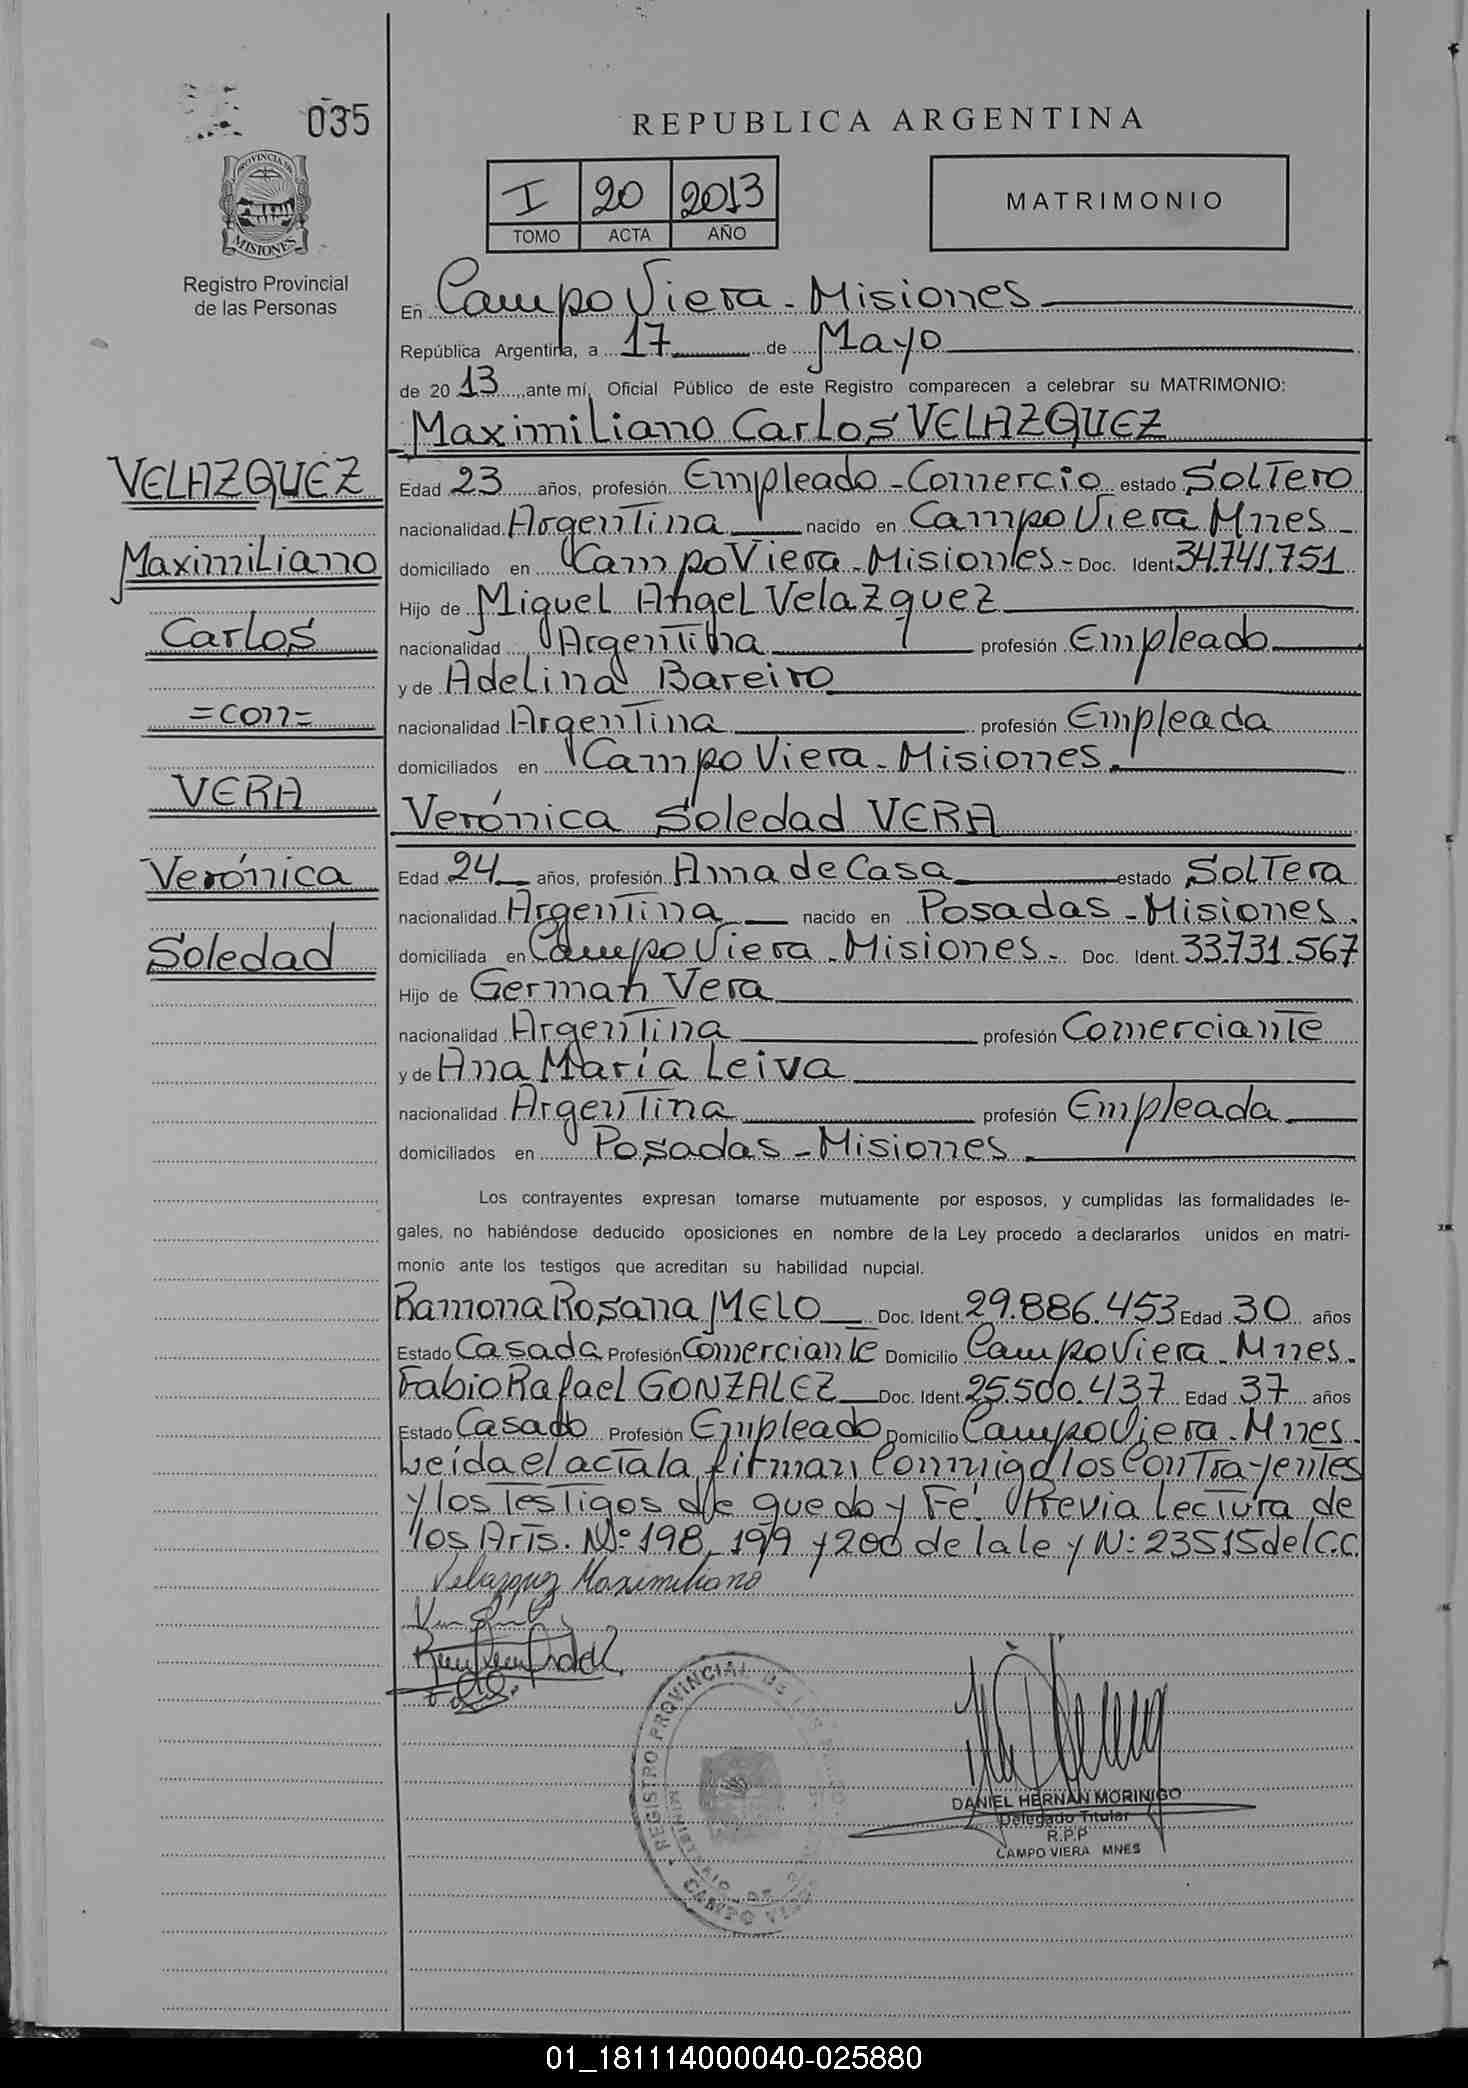 035
REPUBLICA ARGENTINA
I 20 2013
TOMO ACTA AÑO
MATRIMONIO
PROVINCIA DE
MISIONES
Registro Provincial
de las Personas
En Campo Viera - Misiones
República Argentina, a 17 de Mayo
de 20 13 ante mí, Oficial Público de este Registro comparecen a celebrar su MATRIMONIO:
Maximiliano Carlos VELAZQUEZ
VELAZQUEZ
Maximiliano
Carlos
=con=
VERA
Verónica
Soledad
Edad 23 años, profesión Empleado - Comercio estado Soltero
nacionalidad Argentina nacido en Campo Viera Mnes -
domiciliado en Campo Viera - Misiones - Doc. Ident 34.741.751
Hijo de Miguel Angel Velazquez
nacionalidad Argentina profesión Empleado
y de Adelina Bareiro
nacionalidad Argentina profesión Empleada
domiciliados en Campo Viera - Misiones.
Verónica Soledad VERA
Edad 24 años, profesión Ama de Casa estado Soltera
nacionalidad Argentina nacido en Posadas - Misiones.
domiciliada en Campo Viera - Misiones - Doc. Ident. 33.731.567
Hijo de German Vera
nacionalidad Argentina profesión Comerciante
y de Ana María Leiva
nacionalidad Argentina profesión Empleada
domiciliados en Posadas - Misiones
Los contrayentes expresan tomarse mutuamente por esposos, y cumplidas las formalidades le-
gales, no habiéndose deducido oposiciones en nombre de la Ley procedo a declararlos unidos en matri-
monio ante los testigos que acreditan su habilidad nupcial.
Ramona Rosana MELO Doc. Ident. 29.886.453 Edad 30 años
Estado Casada Profesión Comerciante Domicilio Campo Viera - Mnes.
Fabio Rafael GONZALEZ Doc. Ident. 25.500.437 Edad 37 años
Estado Casado Profesión Empleado Domicilio Campo Viera - Mnes.
Leída el acta la firman conmigo los Contrayentes
y los Testigos de que doy Fé. Previa lectura de
los Arts. Nº 198, 199 y 200 de la ley N: 23515 del C.C.
Velazquez Maximiliano
REGISTRO PROVINCIAL DE LAS
MINISTERIO DE
CAMPO VIERA
DANIEL HERNAN MORINIGO
Delegado Titular
R.P.P
CAMPO VIERA MNES
01_181114000040-025880